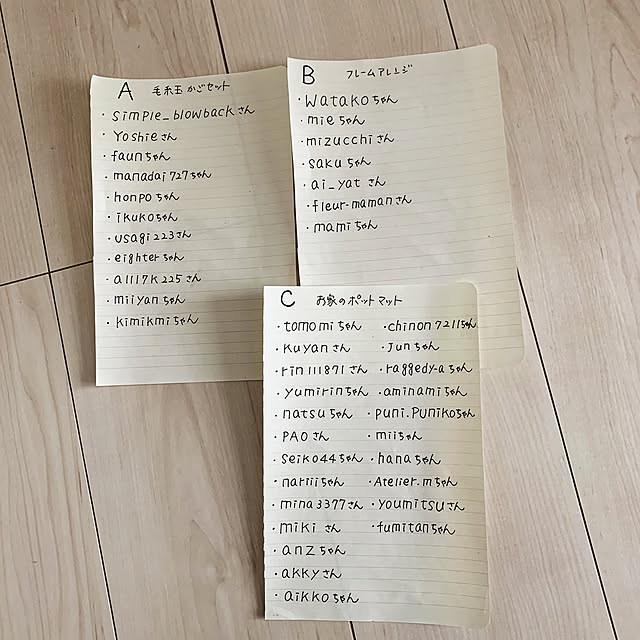 A 毛糸玉かごセット
・simple_blowbackさん
・Yoshieさん
・faunちゃん
・manadai727ちゃん
・honpoちゃん
・ikukoちゃん
・usagi223さん
・eighterちゃん
・a1117k225さん
・miiyanちゃん
・kimikmiちゃん
B フレームアレンジ
・Watakoちゃん
・mieちゃん
・mizucchiさん
・sakuちゃん
・ai_yatさん
・fleur-mamanさん
・mamiちゃん
C お家のポットマット
・tomomiちゃん
・kuyanさん
・rin111871さん
・yumirinちゃん
・natsuちゃん
・PAOさん
・seiko44ちゃん
・nariiiちゃん
・mina3377さん
・mikiさん
・anzちゃん
・akkyさん
・aikkoちゃん
・chinon7211ちゃん
・Junちゃん
・raggedy-aちゃん
・aminamiちゃん
・puni.puniкoちゃん
・miiちゃん
・hanaちゃん
・Atelier.mちゃん
・youmitsuさん
・fumitanちゃん